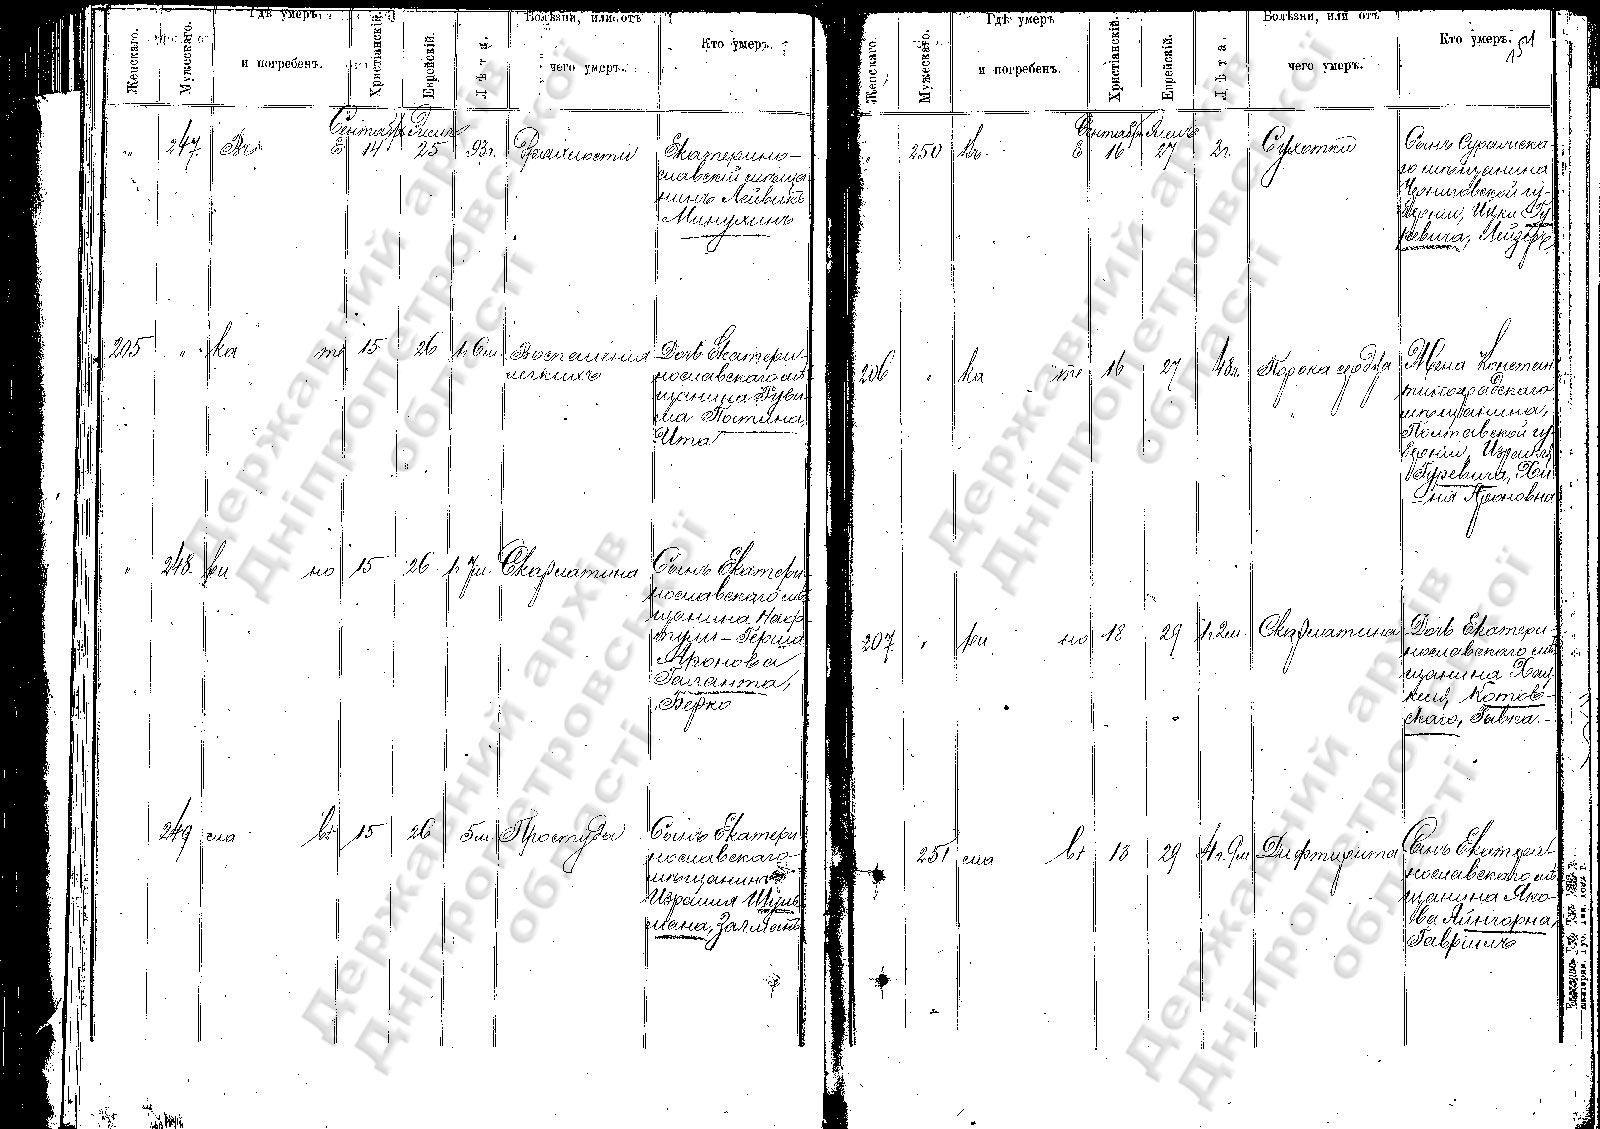 Женскаго.
Мужескаго.
Гдѣ умеръ
и погребенъ.
Христіанскій.
Еврейскій.
Лѣта.
Болѣзни, или отъ
чего умеръ.
Кто умеръ.
Сентябр.
„ 247. Въ Е 14 25 93 г. Дряхлости
Екатерино-
славскій мѣща-
нинъ Лейвикъ
Минухинъ
205 „ ка те 15 26 1 г. 6 м. Воспаленія
легкихъ
Дочь Екатери-
нославскаго мѣ-
щанина Руви-
на
Ита
„ 248. ри но 15 26 1 г. 7 м. Скарлатина
Сынъ Екатери-
нославскаго мѣ-
щанина Наф-
тули-Герша
Аронова
Галанта,
Берко
249 сла вѣ 15 26 5 м. Простуда
Сынъ Екатери-
нославскаго
мѣщанина
Израиля Шуль-
мана, Залманъ
Женскаго.
Мужескаго.
Гдѣ умеръ
и погребенъ.
Христіанскій.
Еврейскій.
Лѣта.
Болѣзни, или отъ
чего умеръ.
Кто умеръ.
151
Сентябр.
„ 250 Въ Е 16 27 2 г. Сухотки
Сынъ Суражска-
го мѣщанина
Черниговской гу-
берніи, Ицки Гу-
ревича, Лейзеръ
206 „ ка те 16 27 48 л. Порока сердца
Жена Констан-
тиноградскаго
мѣщанина,
Полтавской гу-
берніи, Израиля
Гуревича, Хай-
на Ароновна
207. „ ри но 18 29 1 г. 2 м. Скарлатина
Дочь Екатери-
нославскаго мѣ-
щанина Хац-
келя, Котов-
скаго, Гавка.-
251 сла вѣ 18 29 4 г. 9 м. Дифтирита
Сынъ Екатери-
нославскаго мѣ-
щанина Яко-
ва Айнгорна,
Гавріилъ
Державний архів
Дніпропетровської
області
Державний архів
Дніпропетровської
області
Державний архів
Дніпропетровської
області
Державний архів
Дніпропетровської
області